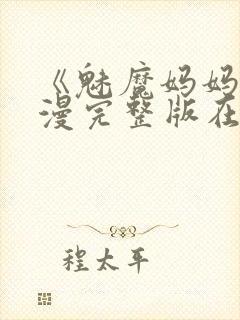 《魅魔妈妈
漫完整版在
程太平